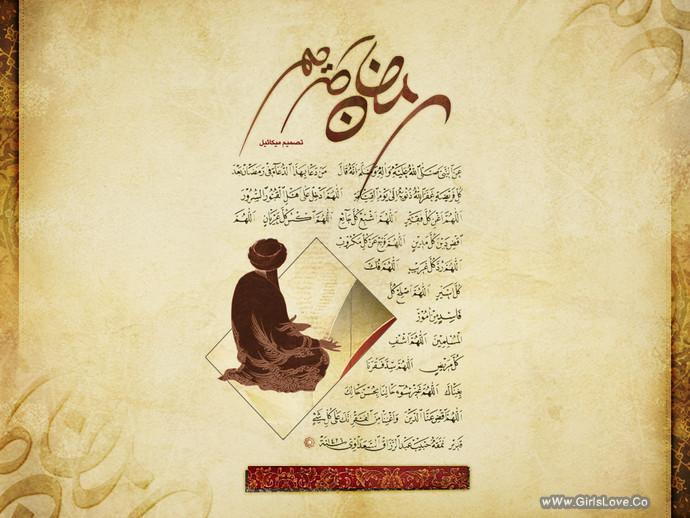 رمضان كريم
تصميم ميكائيل
عن النبي صلى الله عليه واله وسلم انه قال من دعا بهذا الدعاء في رمضان بعد
كل فريضة غفر الله ذنوبه الى يوم القيامة اللهم ادخل على اهل القبور السرور
اللهم اغن كل فقير اللهم اشبع كل جائع اللهم اكس كل عريان اللهم
اقض دين كل مدين اللهم فرج عن كل مكروب
اللهم رد كل غريب اللهم فك
كل اسير اللهم اصلح كل
فاسد من امور
المسلمين اللهم اشف
كل مريض اللهم سد فقرنا
بغناك اللهم غير سوء حالنا بحسن حالك
اللهم اقض عنا الدين واغننا من الفقر انك على كل شيء
قدير نمقه حبيب عبد الرزاق السعداوي سنة
wWw.GirlsLove.Co